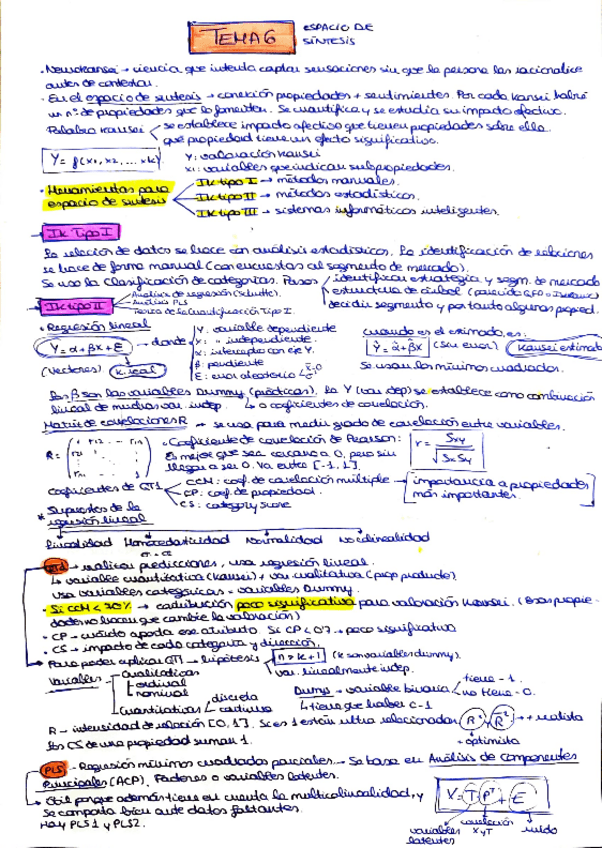 TEMA 6 ESPACIO DE SÍNTESIS
· Neurokansei → ciencia que intenta captar sensaciones sin que la persona las racionalice
antes de contestar.
· En el espacio de síntesis → conexión propiedades + sentimientos. Por cada Kansei habrá
un nº de propiedades que lo fomenten. Se cuantifica y se estudia su impacto afectivo.
Palabra Kansei se establece impacto afectivo que tienen propiedades sobre ella.
que propiedad tiene un efecto significativo.
Y = f(x1, x2, ... xk) Y: valoración Kansei
xi: variables que indican subpropiedades.
· Herramientas para espacio de síntesis
IK tipo I → métodos manuales.
IK tipo II → métodos estadísticos.
IK tipo III → sistemas informáticos inteligentes.
IK Tipo I
La relación de datos se hace con análisis estadísticos. La identificación de relaciones
se hace de forma manual (con encuestas al segmento de mercado).
Se usa la clasificación de categorías. Pasos identificar estrategia y segm. de mercado
estructura de árbol
decidir segmento y por tanto algunas propied.
IK tipo II
Análisis de regresión
Análisis PLS
Teoría de la Cuantificación Tipo I.
· Regresión lineal
Y = α + βx + E → donde
(Vectores) K. real
Y: variable dependiente
X: " independiente.
α: intercepto con eje Y.
β: pendiente
E: error aleatorio
cuando es el estimado, es:
Ŷ = α̂ + β̂x (sin error). Kansei estimado
Se usan los mínimos cuadrados.
Las β son las variables Dummy (prácticas). La Y (var. dep) se establece como combinación
lineal de medidas var. indep. ↳ o coeficientes de correlación.
Matriz de correlaciones R → se usa para medir grado de correlación entre variables.
R =
· Coeficiente de correlación de Pearson: r = Sxy / √SxSy
Es mejor que sea cercano a 0, pero sin
llegar a ser 0. Va entre [-1, 1].
coeficientes de QT1
CCM: coef. de correlación múltiple → importancia a propiedades más importantes.
CP: coef. de propiedad.
CS: category score
* Supuestos de la regresión lineal
Linealidad Homocedasticidad Normalidad No colinealidad
QT1 → realizar predicciones, usa regresión lineal.
↳ variable cuantitativa (Kansei) + var. cualitativa (prop producto).
Usa variables categóricas = variables Dummy.
· Si CCM < 70% → contribución poco significativa para valoración Kansei. (Esas propie-
dades no hacen que cambie la valoración)
· CP → cuánto aporta ese atributo. Si CP < 0'7 → poco significativo
· CS → impacto de cada categoría y dirección.
→ Para poder aplicar QT1 → hipótesis n > k + 1 (k son variables dummy).
var. linealmente indep.
Variables
Cualitativas ordinal nominal
Cuantitativas discreta continua
Dummy → variable binaria tiene - 1. no tiene - 0.
↳ tiene que haber c-1
R → intensidad de relación [0, 1]. Si es 1 están ultra relacionadas R² y R̄² → + realista
+ optimista
Los CS de una propiedad suman 1.
PLS → Regresión mínimos cuadrados parciales → Se basa en Análisis de Componentes
Principales (ACP). Factores o variables latentes.
→ Útil porque además tiene en cuenta la multicolinealidad, y
se comporta bien ante datos faltantes.
Hay PLS1 y PLS2.
X = T Pᵀ + E
variables latentes correlación X y T ruido